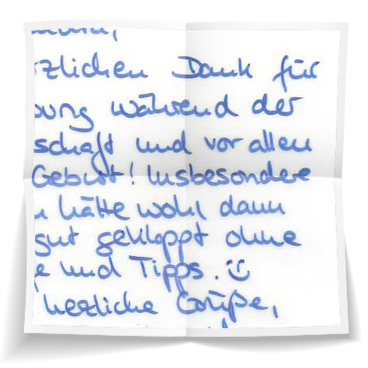 rzlichen Dank für
während der
schaft und vor allem
Geburt! Insbesondere
hätte wohl dann
gut geklappt ohne
e und Tipps. ☺
herzliche Grüße,